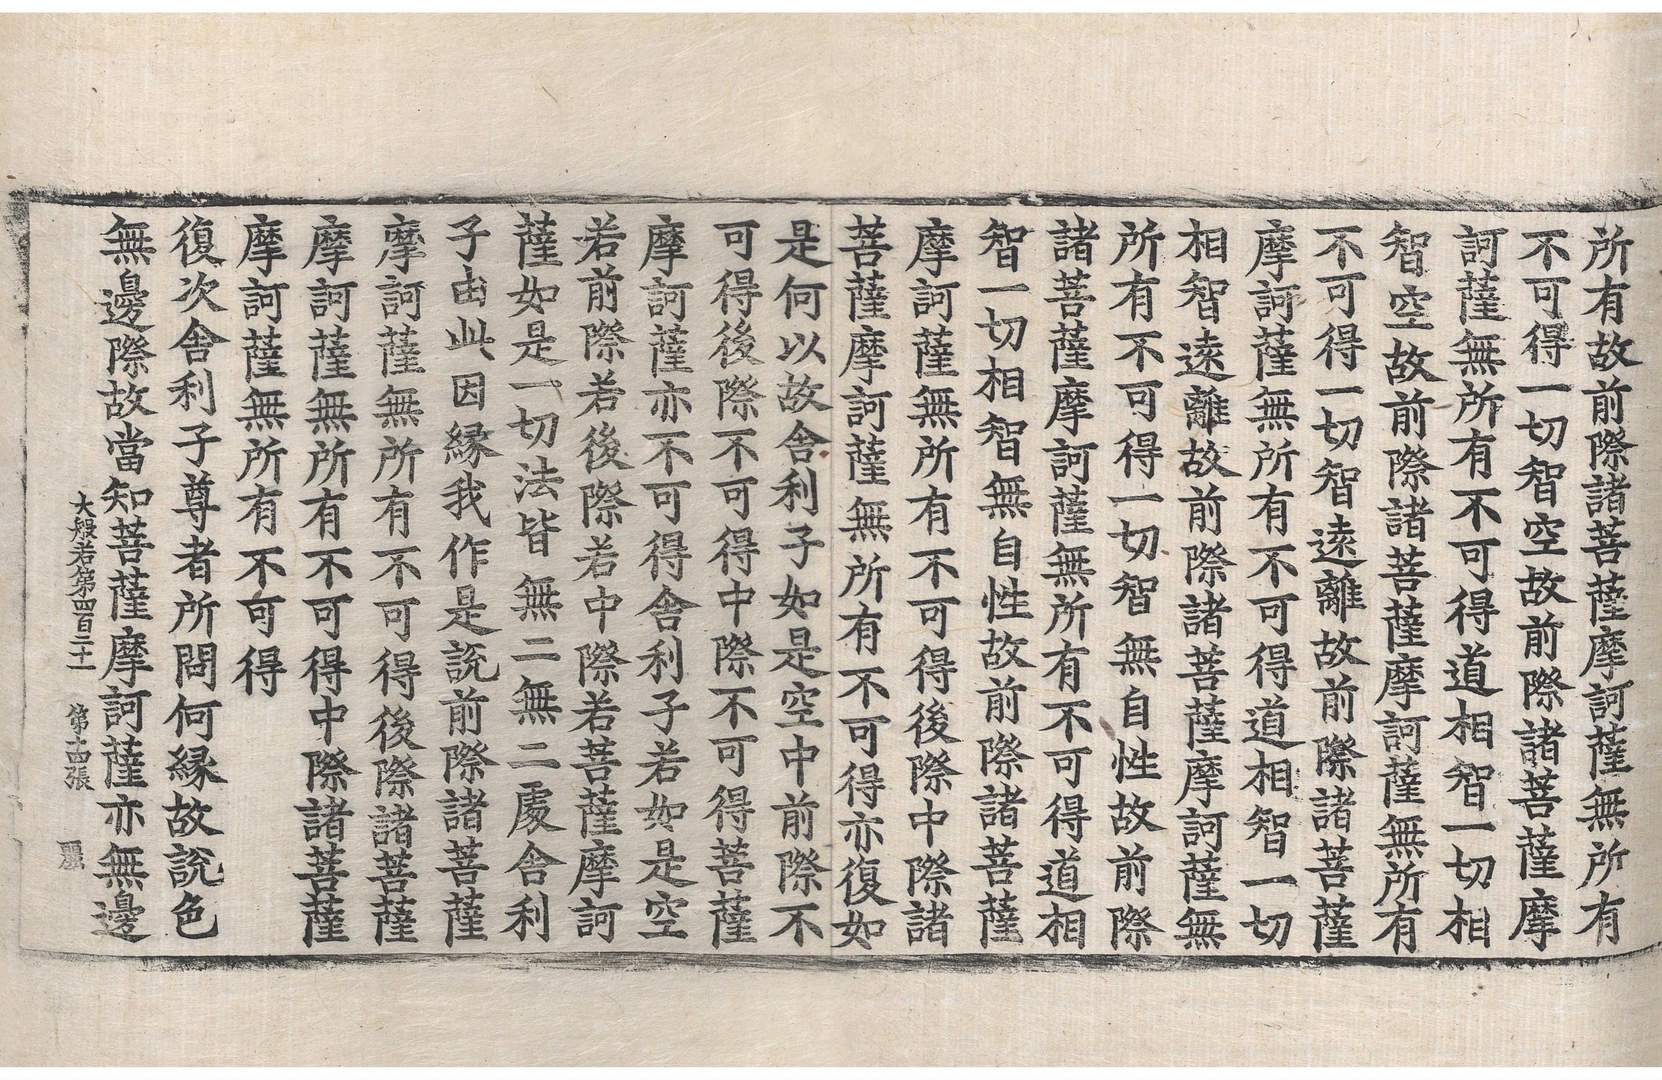 所有故前際諸菩薩摩訶薩無所有
不可得一切智空故前際諸菩薩摩
訶薩無所有不可得道相智一切相
智空故前際諸菩薩摩訶薩無所有
不可得一切智遠離故前際諸菩薩
摩訶薩無所有不可得道相智一切
相智遠離故前際諸菩薩摩訶薩無
所有不可得一切智無自性故前際
諸菩薩摩訶薩無所有不可得道相
智一切相智無自性故前際諸菩薩
摩訶薩無所有不可得後際中際諸
菩薩摩訶薩無所有不可得亦復如
是何以故舍利子如是空中前際不
可得後際不可得中際不可得菩薩
摩訶薩亦不可得舍利子若如是空
若前際若後際若中際若菩薩摩訶
薩如是一切法皆無二無二處舍利
子由此因緣我作是說前際諸菩薩
摩訶薩無所有不可得後際諸菩薩
摩訶薩無所有不可得中際諸菩薩
摩訶薩無所有不可得
復次舍利子尊者所問何緣故說色
無邊際故當知菩薩摩訶薩亦無邊
大般若第四百二十一 第十四張 麗